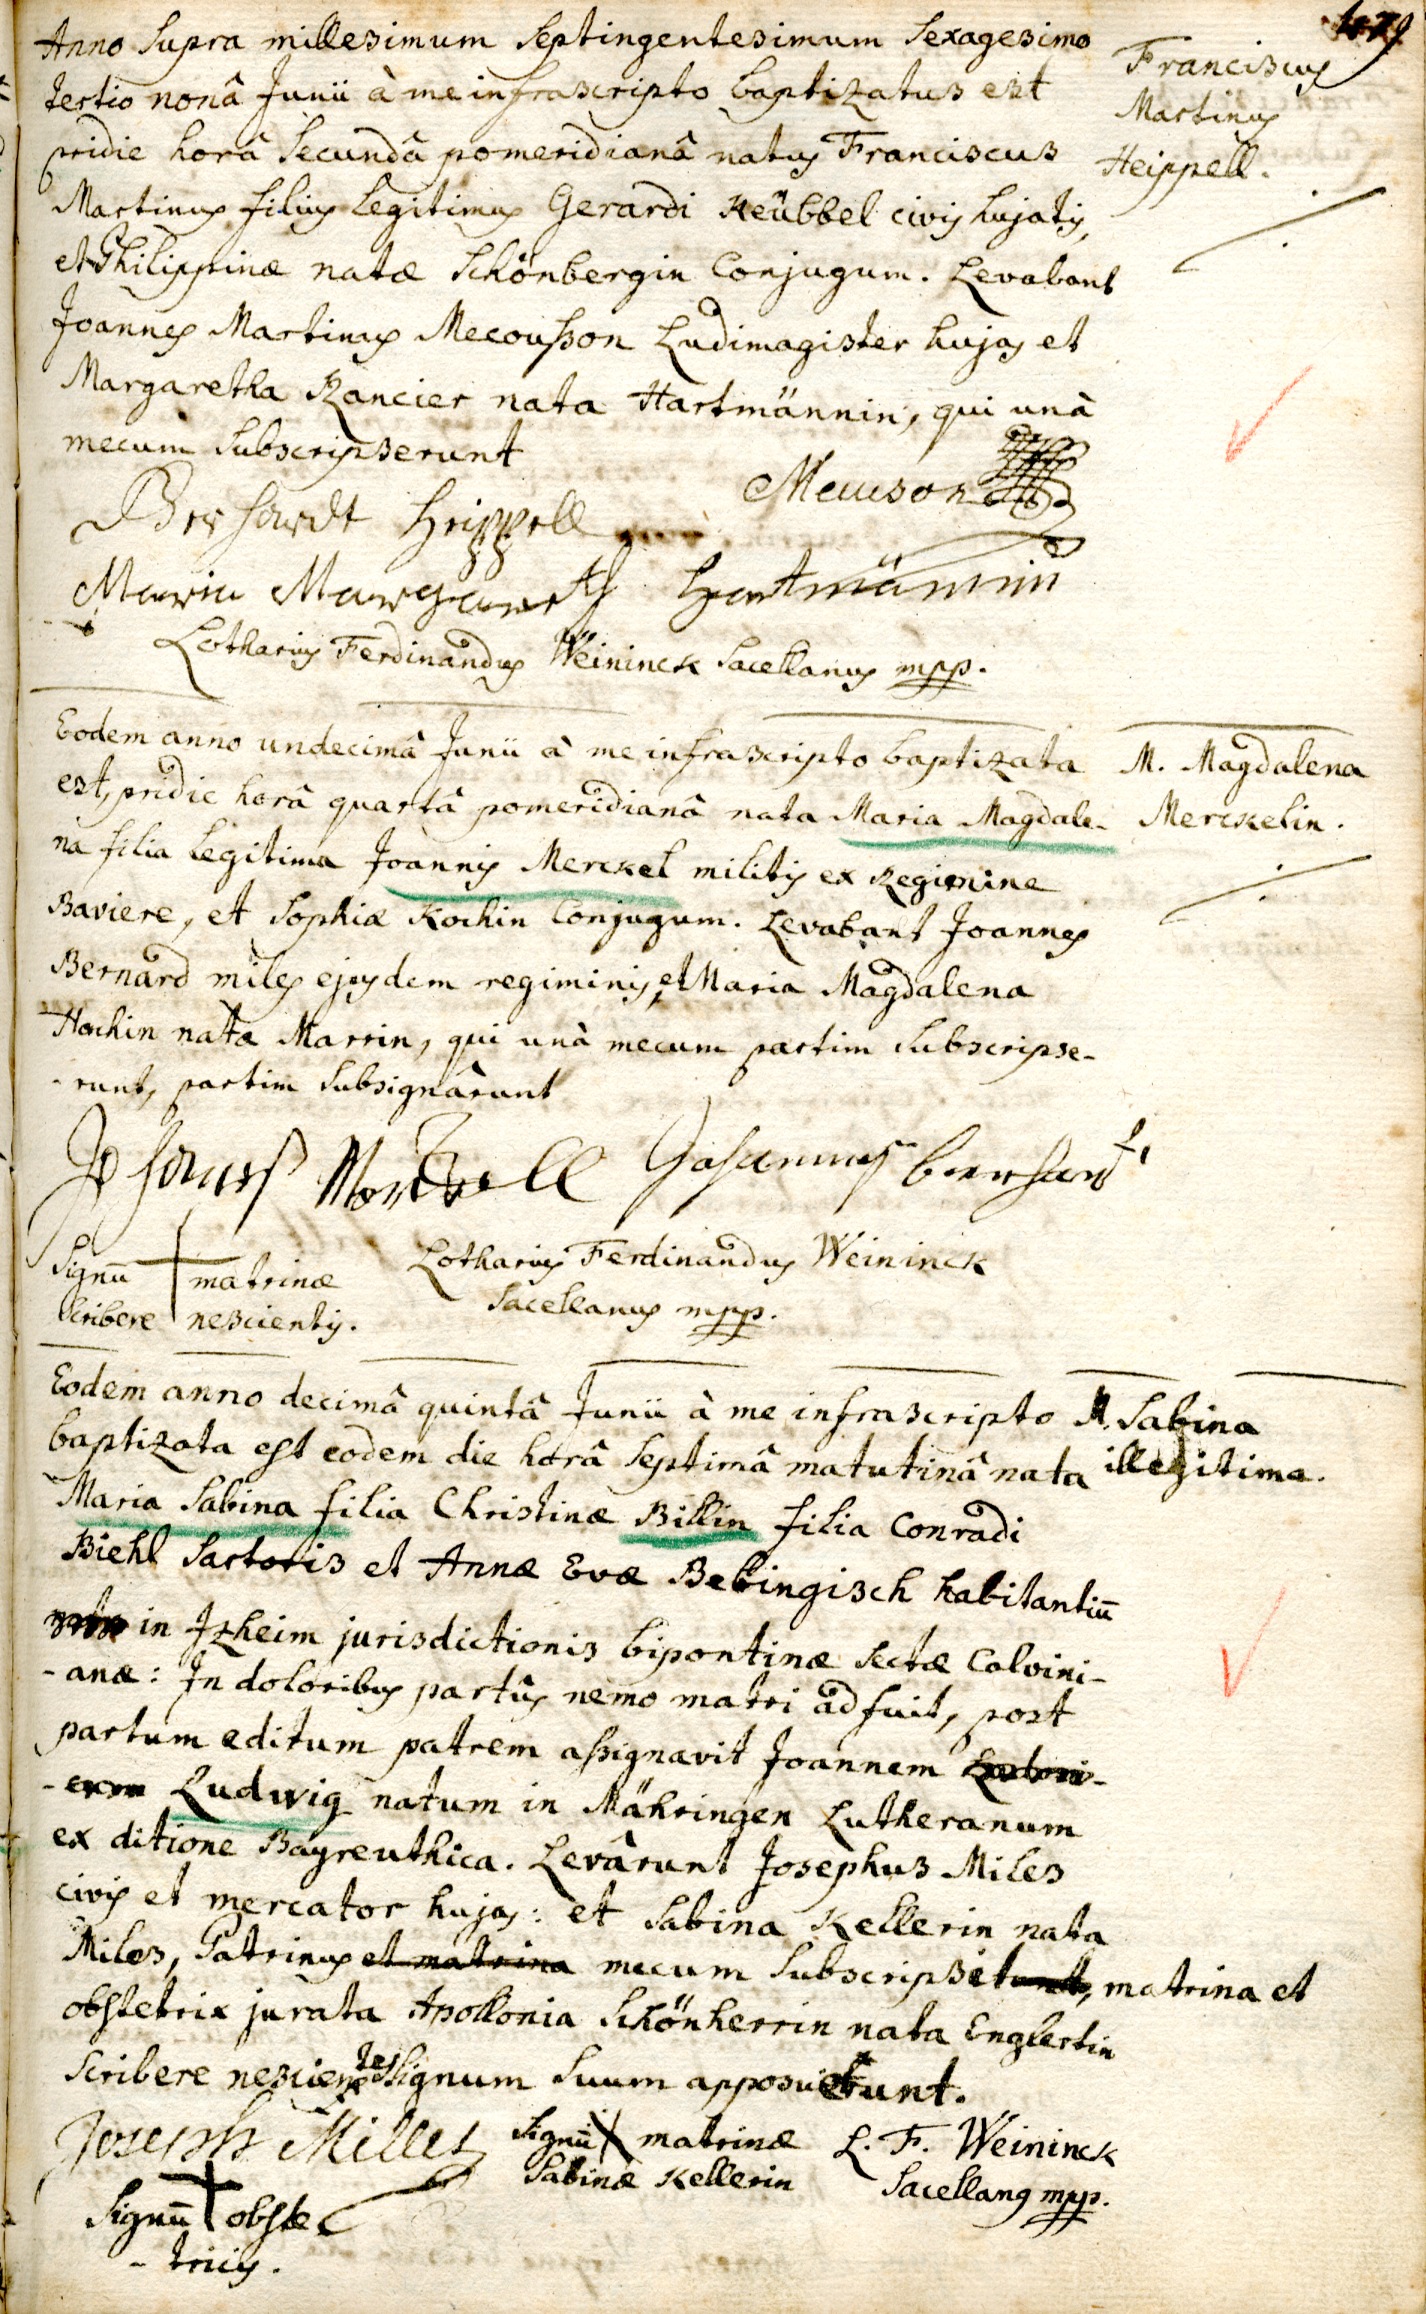 479
Anno supra millesimum septingentesimum sexagesimo
tertio nonâ Junii à me infrascripto baptizatus est
pridie horâ secundâ pomeridianâ natus Franciscus
Martinus filius legitimus Gerardi Keübbel civis hujatis,
et Philippinæ natæ Schönbergin Conjugum. Levabant
Joannes Martinus Mecousson Ludimagister hujas et
Margaretha Rancier nata Hartmännin, qui unà
mecum subscripserunt
Franciscus
Martinus
Heippell.
Mecuson
Bernhardt Heippell
Maria Margareth Hartmännin
Lotharius Ferdinandus Weininck Sacellanus mpp.
Eodem anno undecimâ Junii à me infrascripto baptizata
est, pridie horâ quartâ pomeridianâ nata Maria Magdale-
na filia legitima Joannis Merckel militis ex Regimine
Baviere, et Sophiæ Kochin Conjugum. Levabant Joannes
Bernard miles ejusdem regiminis, et Maria Magdalena
Hochin nata Marrin, qui unà mecum partim subscripse-
-runt, partim subsignârunt
M. Magdalena
Merckelin.
Johannes Merckell Johannes bernhard
Signū matrinæ
scribere nescientis.
Lotharius Ferdinandus Weininck
Sacellanus mpp.
Eodem anno decimâ quintâ Junii à me infrascripto
baptizata est eodem die horâ septimâ matutinâ nata
Maria Sabina filia Christinæ Billin filia Conradi
Biehl Sartoris et Annæ Evæ Bebingisch habitantiū
in Ixheim jurisdictionis bipontinæ sectæ Calvini-
-anæ: In doloribus partûs nemo matri adfuit, post
partum editum patrem assignavit Joannem
Ludwig natum in Mähringen Lutheranum
ex ditione Bayreuthica. Levârunt Josephus Miles
civis et mercator hujas: et Sabina Kellerin nata
Miles, Patrinus et matrina mecum subscripsit, matrina et
obstetrix jurata Apollonia Schönherrin nata Englertin
scribere nescientes signum suum apposuerunt.
M. Sabina
illegitima.
Joseph Milles
Signū matrinæ
Sabinæ Kellerin
L. F. Weininck
Sacellanus mpp.
Signū obste
-tricis.